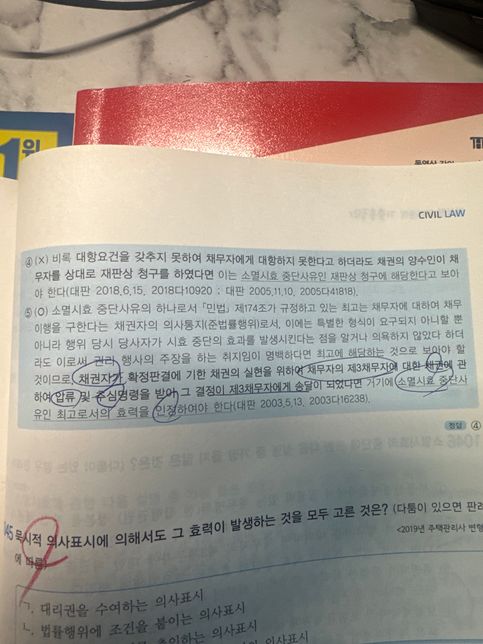 1위
CIVIL LAW
④ (X) 비록 대항요건을 갖추지 못하여 채무자에게 대항하지 못한다고 하더라도 채권의 양수인이 채
무자를 상대로 재판상 청구를 하였다면 이는 소멸시효 중단사유인 재판상 청구에 해당한다고 보아
야 한다(대판 2018.6.15, 2018다10920 ; 대판 2005.11.10, 2005다41818).
⑤ (O) 소멸시효 중단사유의 하나로서 「민법」 제174조가 규정하고 있는 최고는 채무자에 대하여 채무
이행을 구한다는 채권자의 의사통지(준법률행위)로서, 이에는 특별한 형식이 요구되지 아니할 뿐
아니라 행위 당시 당사자가 시효 중단의 효과를 발생시킨다는 점을 알거나 의욕하지 않았다 하더
라도 이로써 권리 행사의 주장을 하는 취지임이 명백하다면 최고에 해당하는 것으로 보아야 할
것이므로, 채권자가 확정판결에 기한 채권의 실현을 위하여 채무자의 제3채무자에 대한 채권에 관
하여 압류 및 추심명령을 받아 그 결정이 제3채무자에게 송달이 되었다면 거기에 소멸시효 중단사
유인 최고로서의 효력을 인정하여야 한다(대판 2003.5.13, 2003다16238).
정답 ④
45 묵시적 의사표시에 의해서도 그 효력이 발생하는 것을 모두 고른 것은? (다툼이 있으면 판례
에 따름)
<2019년 주택관리사 변형
ㄱ. 대리권을 수여하는 의사표시
ㄴ. 법률행위에 조건을 붙이는 의사표시
의사표시